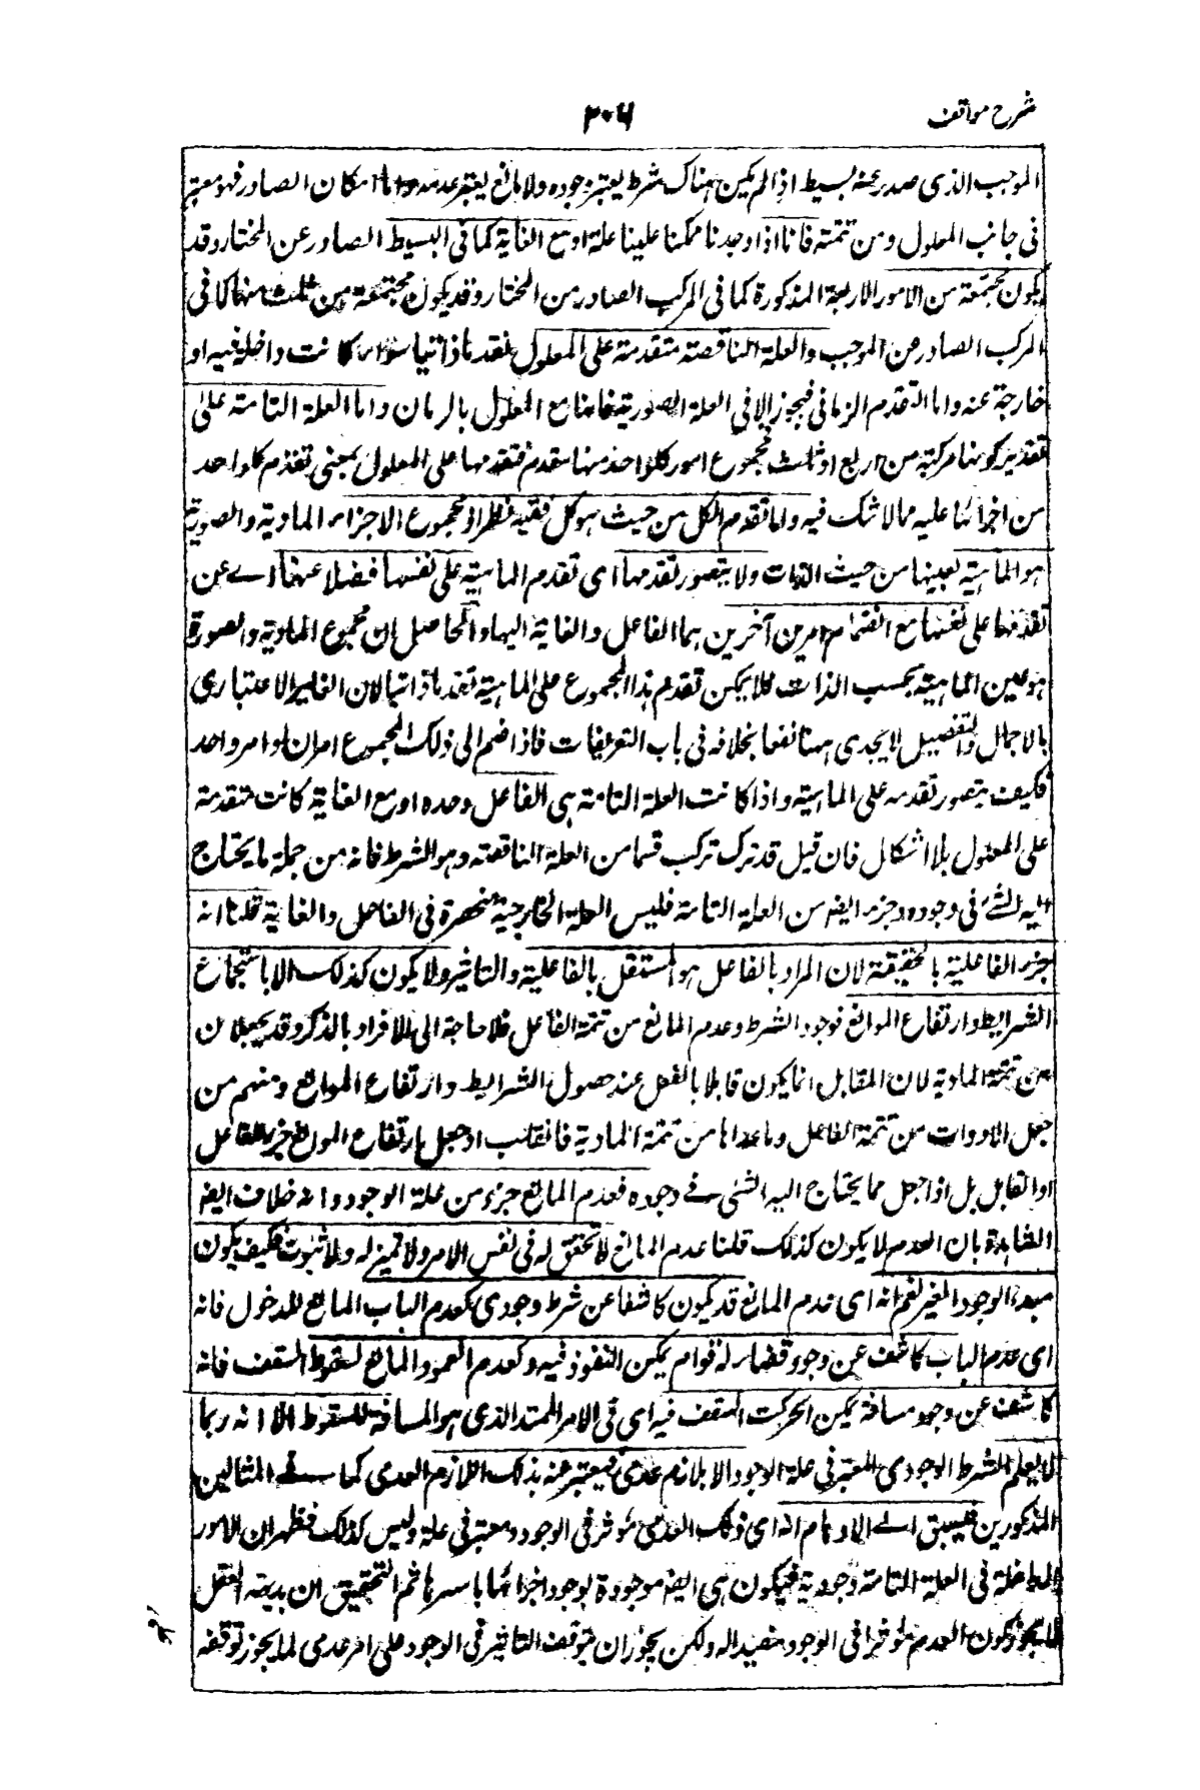 شرح مواقف
۲۰۶
الموجب الذی صدر عنه بسیط اذا لم یکن هناک شرط یعتبر وجوده ولا مانع یعتبر عدمه واما امکان الصادر فهو معتبر
فی جانب المعلول ومن تتمته فانا اذا وجدنا ممکنا طلبنا علة او مع الغایة کما فی البسیط الصادر عن المختار وقد
یکون مجتمعة من الامور الاربعة المذکورة کما فی المرکب الصادر من المختار وقد یکون مجتمعة من ثلث منها کما فی
المرکب الصادر عن الموجب والعلة الناقصة متقدمة علی المعلول تقدما ذاتیا سواء کانت داخلة فیه او
خارجة عنه واما التقدم الزمانی فیجوز الا فی العلة الصوریة فانها مع المعلول بالزمان واما العلة التامة علی
تقدیر کونها مرکبة من اربع او ثلث فمجموع امور کلواحد منها متقدم فتقدمها علی المعلول بمعنی تقدم کلواحد
من اجزائها علیه مما لا شک فیه واما تقدم الکل من حیث هو کل ففیه نظر اذ مجموع الاجزاء المادیة والصوریة
هو الماهیة بعینها من حیث الذات ولا یتصور تقدمها ای تقدم الماهیة علی نفسها فضلا عنها ای عن
تقدمها علی نفسها مع انضمام امرین آخرین هما الفاعل والغایة الیها والحاصل ان مجموع المادیة والصورة
هو عین الماهیة بحسب الذات فلا یمکن تقدم هذا المجموع علی الماهیة تقدما ذاتیا لان التغایر الاعتباری
بالاجمال والتفصیل لا یجدی ههنا نفعا بخلافه فی باب التعریفات فاذا ضم الی ذلک المجموع امران او امر واحد
فکیف یتصور تقدمه علی الماهیة واذا کانت العلة التامة هی الفاعل وحده او مع الغایة کانت متقدمة
علی المعلول بلا اشکال فان قیل قد ترک ترکب قسما من العلة الناقصة وهو الشرط فانه من جملة ما یحتاج
الیه الشئ فی وجوده وجزء ایضا من العلة التامة فلیس العلة الخارجیة منحصرة فی الفاعل والغایة قلنا انه
جزء الفاعلیة بالحقیقة لان المراد بالفاعل هو المستقل بالفاعلیة والتاثیر ولا یکون کذلک الا باستجماع
الشرایط وارتفاع الموانع فوجود الشرط وعدم المانع من تتمة الفاعل فلا حاجة الی الافراد بالذکر وقد یجعلان
من تتمة المادیة لان القابل انما یکون قابلا بالفعل عند حصول الشرایط وارتفاع الموانع ومنهم من
جعل الادوات من تتمة الفاعل وما عداها من تتمة المادیة فان قلت اذ جعل ارتفاع الموانع جزء للفاعل
او القابل بل اذا جعل مما یحتاج الیه الشئ فی وجوده فعدم المانع جزء من علة الوجود وانه خلاف الضرورة
الشاهدة بان العدم لا یکون کذلک قلنا عدم المانع لا تحقق له فی نفس الامر ولا تمیز له ولا ثبوت فکیف یکون
مبدءا لوجود الغیر نعم انه ای عدم المانع قد یکون کاشفا عن شرط وجودی کعدم الباب المانع للدخول فانه
ای عدم الباب کاشف عن وجود فضاء له قوام یمکن النفوذ فیه وکعدم العمود المانع لسقوط السقف فانه
کاشف عن وجود مسافة یمکن تحرک السقف فیه ای فی الامر الممتد الذی هو المسافة للسقوط الا انه ربما
لا یعلم الشرط الوجودی المعتبر فی علة الوجود الا بلازم عدمی فیعتبر عنه بذلک اللازم العدمی کما فی المثالین
المذکورین فیسبق الی الاوهام انه ای ذلک العدمی مؤثر فی الوجود ومعتبر فی علة ولیس کذلک فظهر ان الامور
الداخلة فی العلة التامة وجودیة فیکون هی ایضا موجودة بوجود اجزائها باسرها ثم التحقیق ان بدیهة العقل
لا تجوز کون العدم مؤثرا فی الوجود مفیدا له ولکن یجوز ان یتوقف التاثیر فی الوجود علی امر عدمی کما یجوز توقفه